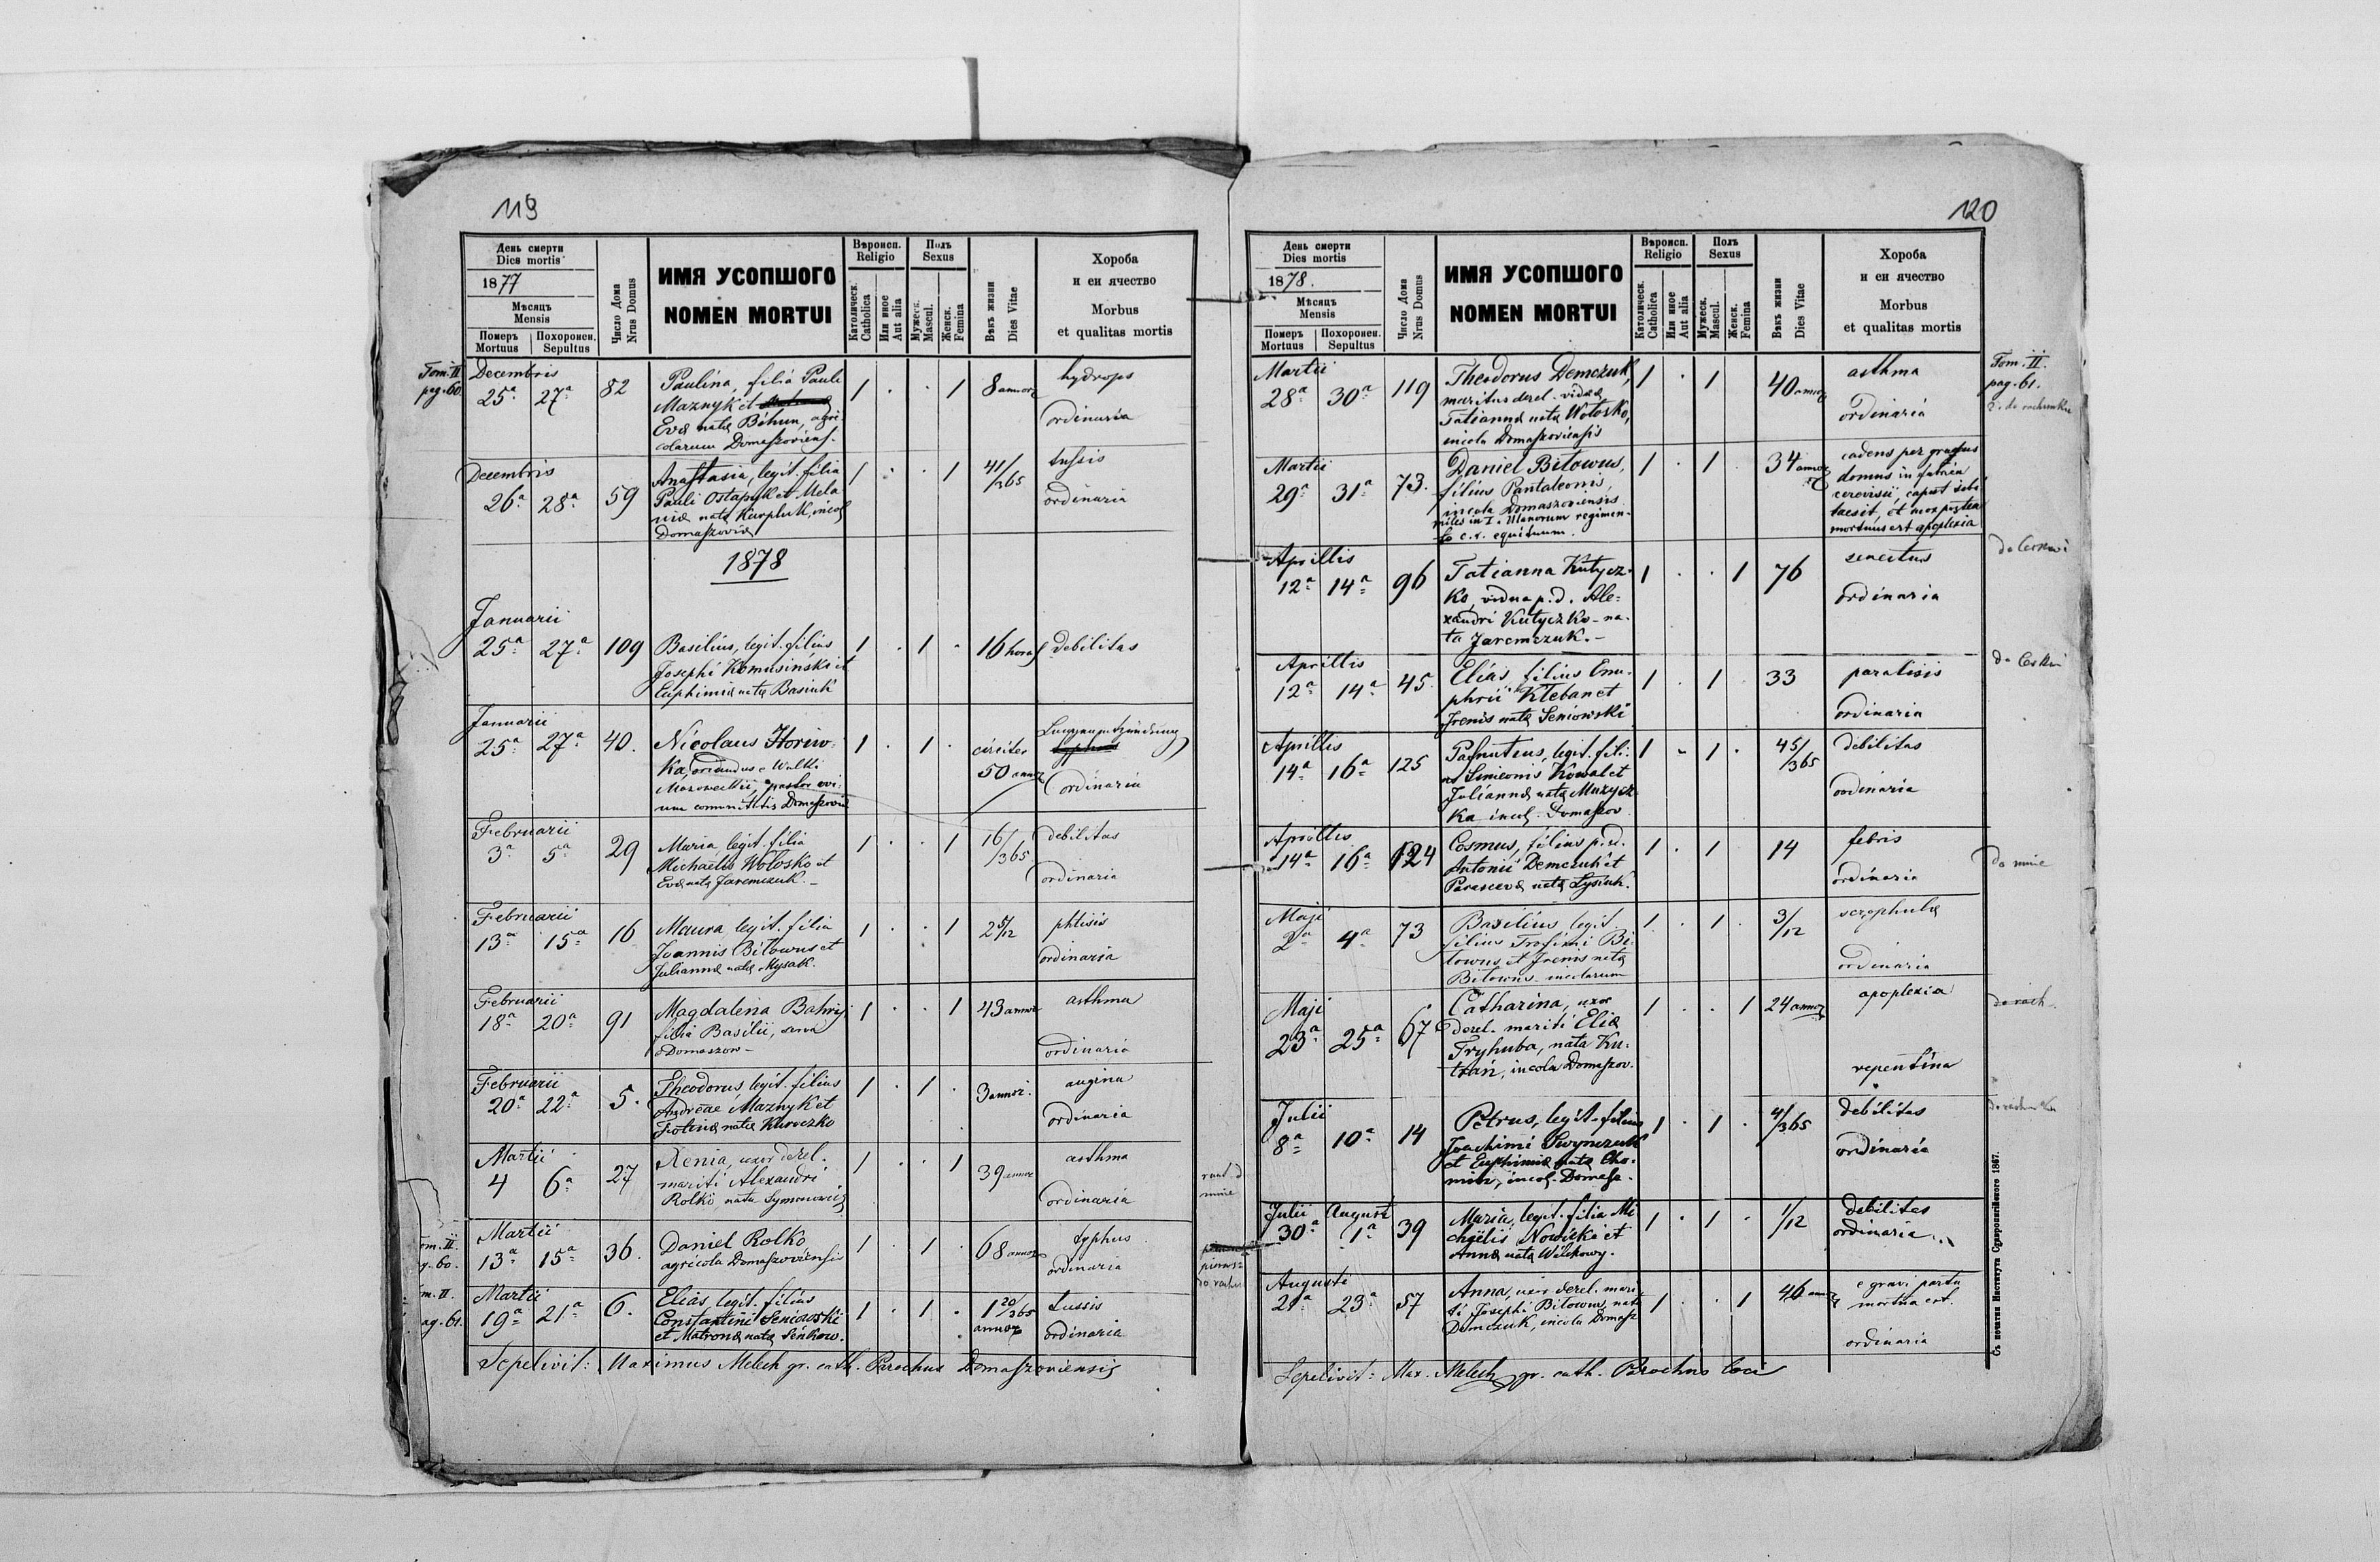 119
День смерти
Dies mortis
1877
Мѣсяцъ
Mensis
Померъ
Mortuus
Похоронен.
Sepultus
Число Дома
Nrus Domus
ИМЯ УСОПШОГО
NOMEN MORTUI
Вѣроисп.
Religio
Католическ.
Catholica
Или иное
Aut alia
Полъ
Sexus
Мужеск.
Mascul.
Женск.
Femina
Вѣкъ жизни
Dies Vitae
Хороба
и еи ячество
Morbus
et qualitas mortis
Tom. II
pag. 60
Decembris
25ª 27ª 82
Paulina, filia Pauli
Maznyk et
Evæ natæ Bihun, agri-
colarum Domaszoviens.
1 . . 1 8 annor
hydrops
ordinaria
Decembris
26ª 28ª 59
Anastasia, legit. filia
Pauli Ostapyk et Mela
niæ natæ
Domaszoviæ
1 . . 1 41/365
tussis
ordinaria
1878
Januarii
25ª 27ª 109
Basilius, legit. filius
Josephi Komusinski et
Euphimiæ natæ Basiuk
1 . 1 . 16 horas
debilitas
Januarii
25ª 27ª 40.
Nicolaus Horiw-
ka, oriundus e Wulki
Mazoweckii, pastor ovi-
um communitatis Domaszoviæ
1 . 1 . circiter
50 annor
Lungenentzündung
typhus
ordinaria
Februarii
3ª 5ª 29
Maria, legit. filia
Michaelis Wołosko et
Evæ natæ Jaremczuk. –
1 . . 1 16/365
debilitas
ordinaria
Februarii
13ª 15ª 16
Maura legit. filia
Joannis Bitowus et
Juliannæ natæ Mysak.
1 . . 1 2 5/12
phtisis
ordinaria
Februarii
18ª 20ª 91
Magdalena Bahrij
filia Basilii, serva
e Domaszow –
1 . . 1 43 annor
asthma
ordinaria
Februarii
20ª 22ª 5.
Theodorus, legit. filius
Andreae Maznyk et
Fotinæ natæ Kluczko
1 . 1 . 3 annor.
angina
ordinaria
Martii
4 6ª 27
Xenia, uxor derel.
mariti Alexandri
Rolko nata Symonowicz
1 . . 1 39 annor
asthma
ordinaria
Martii
13ª 15ª 36.
Daniel Rolko
agricola Domaszoviensis
1 . 1 . 68 annor
typhus
ordinaria
Martii
19ª 21ª 6.
Elias legit. filius
Constantini Seniowski
et Matronæ natæ Senkow.
1 . 1 . 1 20/365
annor
tussis
ordinaria
Sepelivit: Maximus Melech gr. cath. Parochus Domaszoviensis
120
День смерти
Dies mortis
1878.
Мѣсяцъ
Mensis
Померъ
Mortuus
Похоронен.
Sepultus
Число Дома
Nrus Domus
ИМЯ УСОПШОГО
NOMEN MORTUI
Вѣроисп.
Religio
Католическ.
Catholica
Или иное
Aut alia
Полъ
Sexus
Мужеск.
Mascul.
Женск.
Femina
Вѣкъ жизни
Dies Vitae
Хороба
и еи ячество
Morbus
et qualitas mortis
Martii
28ª 30ª 119
Theodorus Demczuk,
maritus derel. viduæ
Tatiannæ natæ Wołosko,
incola Domaszoviensis
1 . 1 40 annor
asthma
ordinaria
Tom. II.
pag. 61.
Martii
29ª 31ª 73.
Daniel Bitowus,
filius Pantaleonis,
incola Domaszoviensis
miles in I. Ulanorum regimen-
to c. r. equituum.
1 . 1 34 annor
cadens per gradus
domus in fabrica
cerevisii, caput sibi
laesit, et mox postea
mortuus est apoplexia
Aprillis
12ª 14ª 96
Tatianna Kutycz-
ko, vidua p. d. Ale-
xandri Kutyczko - na-
ta Jaremczuk. –
1 . . 1 76
senectus
ordinaria
Aprillis
12ª 14ª 45.
Elias, filius Onu-
phrii Kleban et
Irenis natæ Seniowski
1 . 1 33
paralisis
ordinaria
Aprillis
14ª 16ª 125
Pafnutius, legit. fili-
us Simeonis Kowal et
Juliannæ natæ Muzycz-
ka incol. Domaszov
1 - 1 . 45/365
debilitas
ordinaria
Aprillis
14ª 16ª 124
Cosmus, filius p. d.
Antonii Demczuk et
Parascevæ natæ Łysiuk.
1 . 1 14
febris
ordinaria
do mnie
Maji
2ª 4ª 73
Basilius legit.
filius Trofimi Bi-
towus et Irenis natæ
Bitowus incolarum
1 . 1 . 3/12
scrophulæ
ordinaria
Maji
23ª 25ª 67
Catharina, uxor
derel. mariti Eliæ
Tryhuba, nata Ku-
tran, incola Domaszov.
1 . . 1 24 annor
apoplexia
repentina
Julii
8ª 10ª 14
Petrus, legit. filius
Joachimi Swynczuk
et Euphimiæ natæ Cho-
min, incol. Domasz.
1 . 1 . 4/365
debilitas
ordinaria
Julii August
30ª 1ª 39
Maria, legit. filia Mi
chaëlis Nowicki et
Annæ natæ Wilkowy.
1 . 1 . 1/12
debilitas
ordinaria
Augusti
21ª 23ª 57
Anna, uxor derel. mari
ti Josephi Bitowus, nata
Demczuk, incola Domasz
1 . . 1 46 annor
e gravi partu
mortua est.
ordinaria
Sepelivit: Max. Melech gr. cath. Parochus loci
Съ печатни Института Ставропигійского 1867.